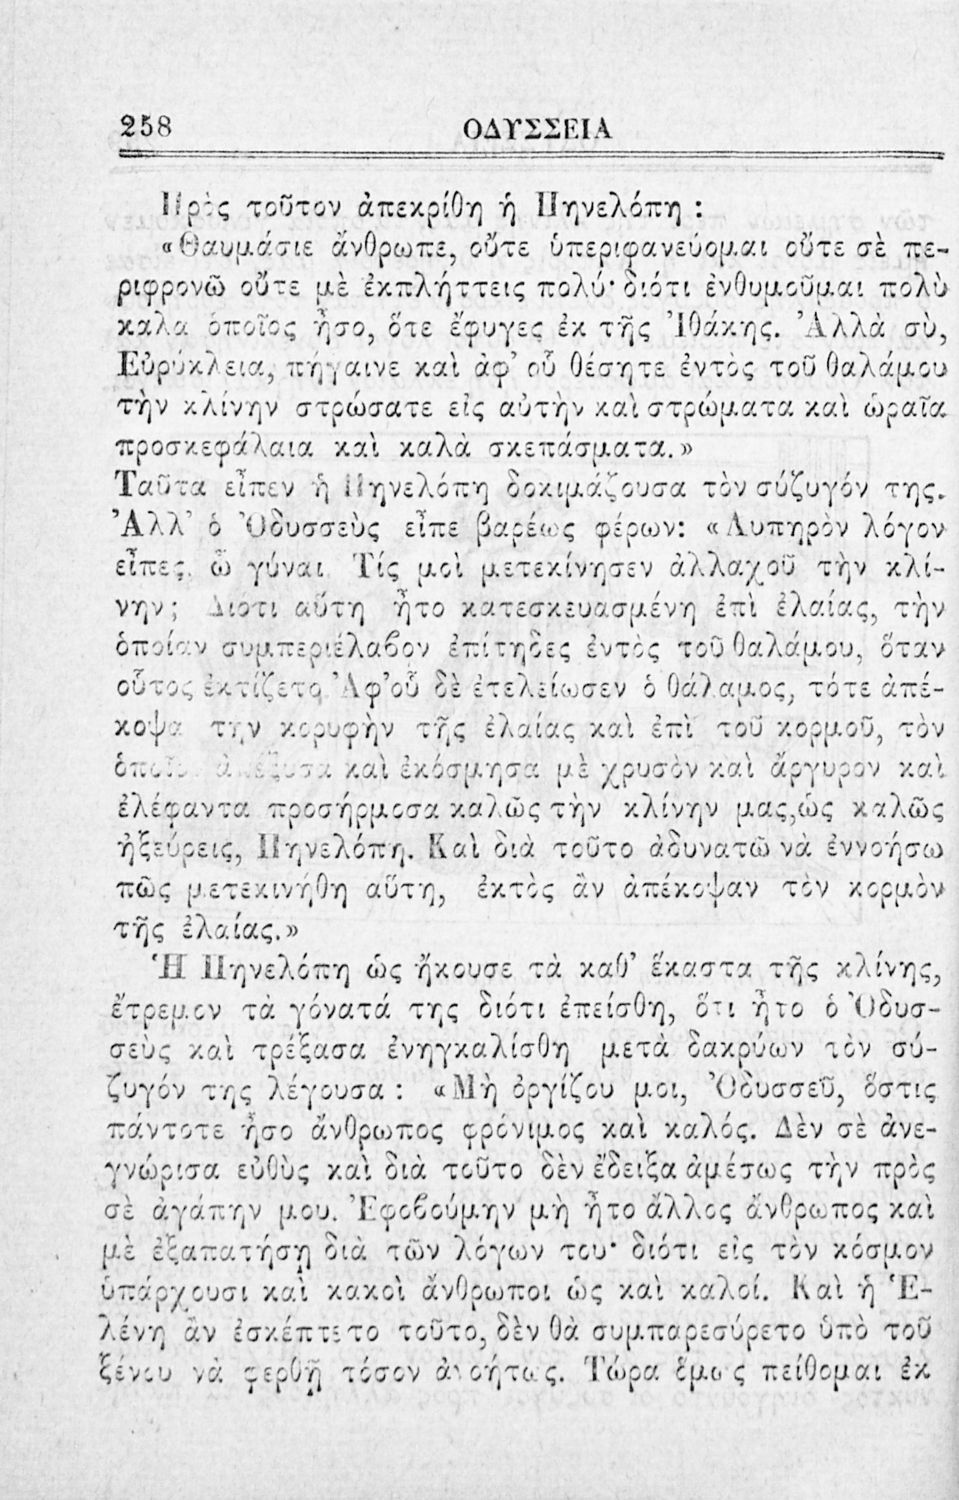 258 ΟΔΥΣΣΕΙΑ
Πρὸς τοῦτον ἀπεκρίθη ἡ Πηνελόπη :
«Θαυμάσιε ἄνθρωπε, οὔτε ὑπεριφανεύομαι οὔτε σὲ πε-
ριφρονῶ οὔτε μὲ ἐκπλήττεις πολύ· διότι ἐνθυμοῦμαι πολὺ
καλα ὁποῖος ἦσο, ὅτε ἔφυγες ἐκ τῆς Ἰθάκης. Ἀλλὰ σὺ,
Εὐρύκλεια, πήγαινε καὶ ἀφ’ οὗ θέσητε ἐντὸς τοῦ θαλάμου
τὴν κλίνην στρώσατε εἰς αὐτὴν καὶ στρώματα καὶ ὡραῖα
προσκεφάλαια καὶ καλὰ σκεπάσματα.»
Ταῦτα εἶπεν ἡ Πηνελόπη δοκιμάζουσα τὸν σύζυγόν της.
Ἀλλ’ ὁ Ὀδυσσεὺς εἶπε βαρέως φέρων: «Λυπηρὸν λόγον
εἶπες, ὦ γύναι Τίς μοὶ μετεκίνησεν ἀλλαχοῦ τὴν κλί-
νην; Διότι αὕτη ἦτο κατεσκευασμένη ἐπὶ ἐλαίας, τὴν
ὁποίαν συμπεριέλαβον ἐπίτηδες ἐντὸς τοῦ θαλάμου, ὅταν
οὗτος ἐκτίζετο Ἀφ’οὗ δὲ ἐτελείωσεν ὁ θάλαμος, τότε ἀπέ-
κοψα τὴν κορυφὴν τῆς ἐλαίας καὶ ἐπὶ τοῦ κορμοῦ, τὸν
ὁποῖον καὶ ἐκόσμησα μὲ χρυσὸν καὶ ἄργυρον καὶ
ἐλέφαντα προσήρμοσα καλῶς τὴν κλίνην μας,ὡς καλῶς
ἠξεύρεις, Πηνελόπη. Καὶ διὰ τοῦτο ἀδυνατῶ νὰ ἐννοήσω
πῶς μετεκινήθη αὕτη, ἐκτὸς ἂν ἀπέκοψαν τὸν κορμὸν
τῆς ἐλαίας.»
Ἡ Πηνελόπη ὡς ἤκουσε τὰ καθ’ ἕκαστα τῆς κλίνης,
ἔτρεμον τὰ γόνατά της διότι ἐπείσθη, ὅτι ἦτο ὁ Ὀδυσ-
σεὺς καὶ τρέξασα ἐνηγκαλίσθη μετὰ δακρύων τὸν σύ-
ζυγόν της λέγουσα : «Μὴ ὀργίζου μοι, Ὀδυσσεῦ, ὅστις
πάντοτε ἦσο ἄνθρωπος φρόνιμος καὶ καλός. Δὲν σὲ ἀνε-
γνώρισα εὐθὺς καὶ διὰ τοῦτο δὲν ἔδειξα ἀμέσως τὴν πρὸς
σὲ ἀγάπην μου. Ἐφοβούμην μὴ ἦτο ἄλλος ἄνθρωπος καὶ
μὲ ἐξαπατήσῃ διὰ τῶν λόγων του· διότι εἰς τὸν κόσμον
ὑπάρχουσι καὶ κακοὶ ἄνθρωποι ὡς καὶ καλοί. Καὶ ἡ Ἑ-
λένη ἂν ἐσκέπτετο τοῦτο, δὲν θὰ συμπαρεσύρετο ὑπὸ τοῦ
ξένου νὰ φερθῇ τόσον ἀνοήτως. Τώρα ὅμως πείθομαι ἐκ